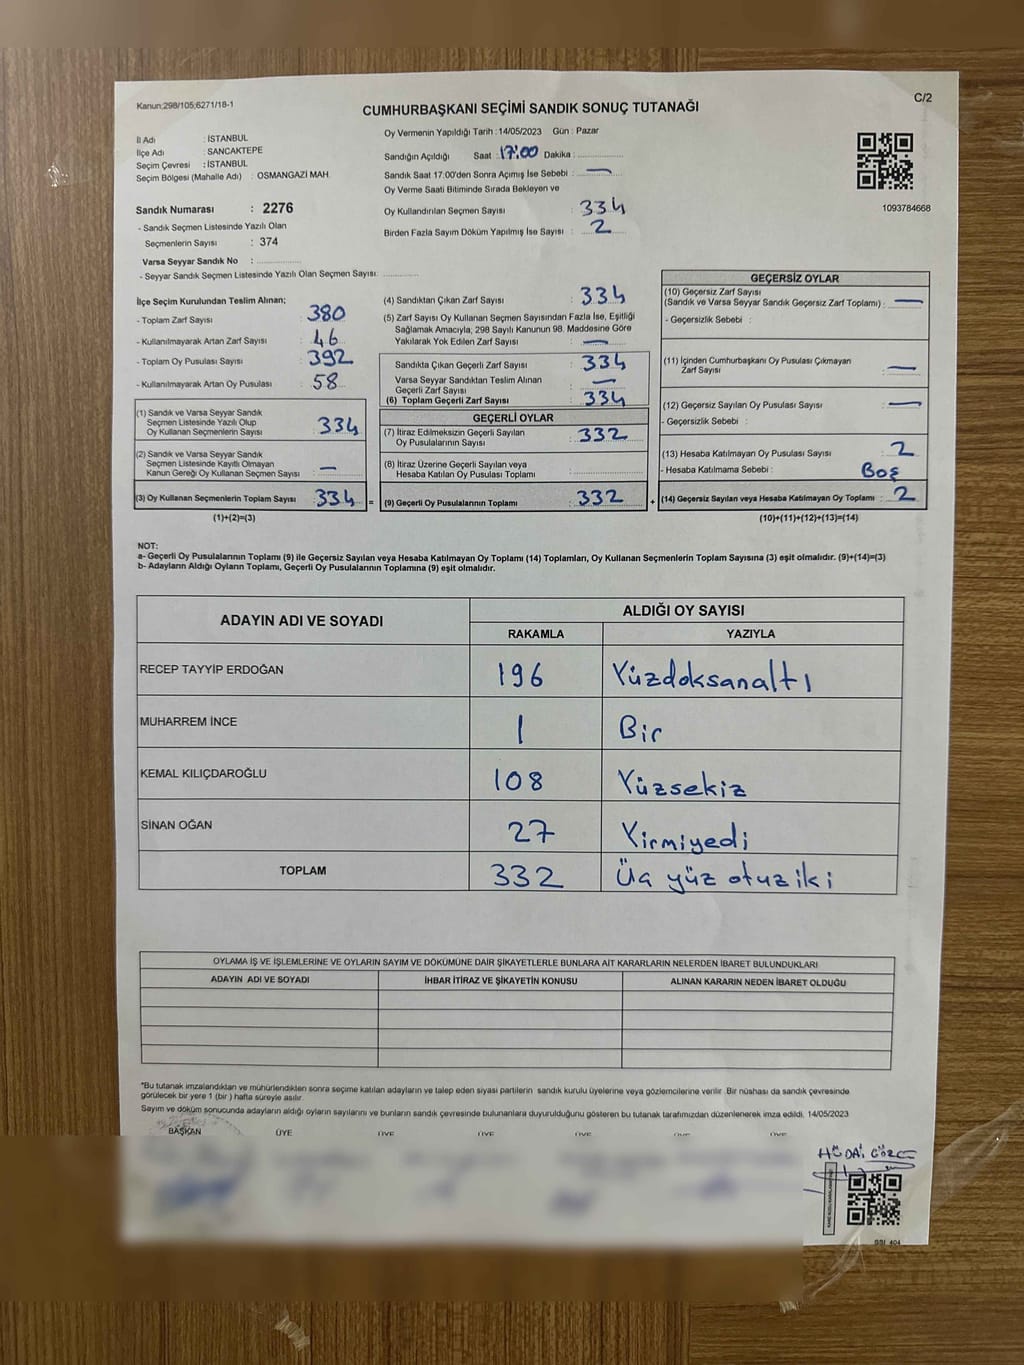 Kanun:298/105;6271/18-1
C/2
CUMHURBAŞKANI SEÇİMİ SANDIK SONUÇ TUTANAĞI
İl Adı : İSTANBUL
İlçe Adı : SANCAKTEPE
Seçim Çevresi : İSTANBUL
Seçim Bölgesi (Mahalle Adı) : OSMANGAZİ MAH.
Sandık Numarası : 2276
- Sandık Seçmen Listesinde Yazılı Olan
Seçmenlerin Sayısı : 374
Varsa Seyyar Sandık No : ..............
- Seyyar Sandık Seçmen Listesinde Yazılı Olan Seçmen Sayısı: ............
Oy Vermenin Yapıldığı Tarih : 14/05/2023 Gün : Pazar
Sandığın Açıldığı Saat : 17:00 Dakika : ..............
Sandık Saat 17:00'den Sonra Açımış İse Sebebi : —
Oy Verme Saati Bitiminde Sırada Bekleyen ve
Oy Kullandırılan Seçmen Sayısı : 334
Birden Fazla Sayım Döküm Yapılmış İse Sayısı : 2
1093784668
İlçe Seçim Kurulundan Teslim Alınan;
- Toplam Zarf Sayısı : 380
- Kullanılmayarak Artan Zarf Sayısı : 46
- Toplam Oy Pusulası Sayısı : 392
- Kullanılmayarak Artan Oy Pusulası : 58
(1) Sandık ve Varsa Seyyar Sandık
Seçmen Listesinde Yazılı Olup
Oy Kullanan Seçmenlerin Sayısı : 334
(2) Sandık ve Varsa Seyyar Sandık
Seçmen Listesinde Kayıtlı Olmayan
Kanun Gereği Oy Kullanan Seçmen Sayısı : —
(3) Oy Kullanan Seçmenlerin Toplam Sayısı : 334 =
(1)+(2)=(3)
(4) Sandıktan Çıkan Zarf Sayısı : 334
(5) Zarf Sayısı Oy Kullanan Seçmen Sayısından Fazla İse, Eşitliği
Sağlamak Amacıyla, 298 Sayılı Kanunun 98. Maddesine Göre
Yakılarak Yok Edilen Zarf Sayısı : —
Sandıkta Çıkan Geçerli Zarf Sayısı : 334
Varsa Seyyar Sandıktan Teslim Alınan
Geçerli Zarf Sayısı : —
(6) Toplam Geçerli Zarf Sayısı : 334
GEÇERLİ OYLAR
(7) İtiraz Edilmeksizin Geçerli Sayılan
Oy Pusulalarının Sayısı : 332
(8) İtiraz Üzerine Geçerli Sayılan veya
Hesaba Katılan Oy Pusulası Toplamı : ..............
(9) Geçerli Oy Pusulalarının Toplamı : 332 +
GEÇERSİZ OYLAR
(10) Geçersiz Zarf Sayısı
(Sandık ve Varsa Seyyar Sandık Geçersiz Zarf Toplamı) : —
- Geçersizlik Sebebi :
(11) İçinden Cumhurbaşkanı Oy Pusulası Çıkmayan
Zarf Sayısı : —
(12) Geçersiz Sayılan Oy Pusulası Sayısı : —
- Geçersizlik Sebebi :
(13) Hesaba Katılmayan Oy Pusulası Sayısı : 2
- Hesaba Katılmama Sebebi : Boş
(14) Geçersiz Sayılan veya Hesaba Katılmayan Oy Toplamı : 2
(10)+(11)+(12)+(13)=(14)
NOT:
a- Geçerli Oy Pusulalarının Toplamı (9) ile Geçersiz Sayılan veya Hesaba Katılmayan Oy Toplamı (14) Toplamları, Oy Kullanan Seçmenlerin Toplam Sayısına (3) eşit olmalıdır. (9)+(14)=(3)
b- Adayların Aldığı Oyların Toplamı, Geçerli Oy Pusulalarının Toplamına (9) eşit olmalıdır.
ADAYIN ADI VE SOYADI
ALDIĞI OY SAYISI
RAKAMLA YAZIYLA
RECEP TAYYİP ERDOĞAN 196 Yüzdoksanaltı
MUHARREM İNCE 1 Bir
KEMAL KILIÇDAROĞLU 108 Yüzsekiz
SİNAN OĞAN 27 Yirmiyedi
TOPLAM 332 Üç yüz otuz iki
OYLAMA İŞ VE İŞLEMLERİNE VE OYLARIN SAYIM VE DÖKÜMÜNE DAİR ŞİKAYETLERLE BUNLARA AİT KARARLARIN NELERDEN İBARET BULUNDUKLARI
ADAYIN ADI VE SOYADI İHBAR İTİRAZ VE ŞİKAYETİN KONUSU ALINAN KARARIN NEDEN İBARET OLDUĞU
*Bu tutanak imzalandıktan ve mühürlendikten sonra seçime katılan adayların ve talep eden siyasi partilerin sandık kurulu üyelerine veya gözlemcilerine verilir. Bir nüshası da sandık çevresinde
görülecek bir yere 1 (bir ) hafta süreyle asılır.
Sayım ve döküm sonucunda adayların aldığı oyların sayılarını ve bunların sandık çevresinde bulunanlara duyurulduğunu gösteren bu tutanak tarafımızdan düzenlenerek imza edildi. 14/05/2023
BAŞKAN ÜYE ÜYE ÜYE ÜYE ÜYE ÜYE